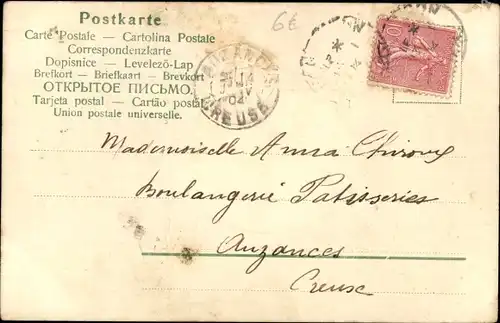 Postkarte
Carte Postale – Cartolina Postale
Correspondenzkarte
Dopisnice – Levelező-Lap
Brefkort – Briefkaart – Brevkort
ОТКРЫТОЕ ПИСЬМО.
Tarjeta postal – Cartão postal
Union postale universelle.
6€
CREUSE
04
10
Mademoiselle Anna
Boulangerie Patisseries
Auzances
Creuse